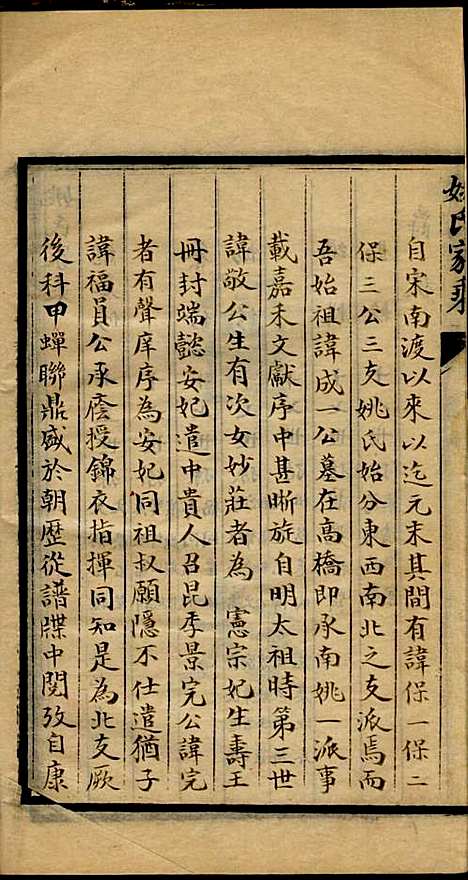 姚氏家乘
自宋南渡以來以迄元末其間有諱保一保二
保三公三支姚氏始分東西南北之支派焉而
吾始祖諱成一公墓在高橋即承南姚一派事
載嘉禾文獻序中甚晰旋自明太祖時第三世
諱敬公生有次女妙莊者為 憲宗妃生壽王
冊封端懿安妃遣中貴人召昆季景完公諱完
者有聲庠序為安妃同祖叔願隱不仕遣猶子
諱福員公承廕授錦衣指揮同知是為北支厥
後科甲蟬聯鼎盛於朝歷從譜牒中閱攷自康